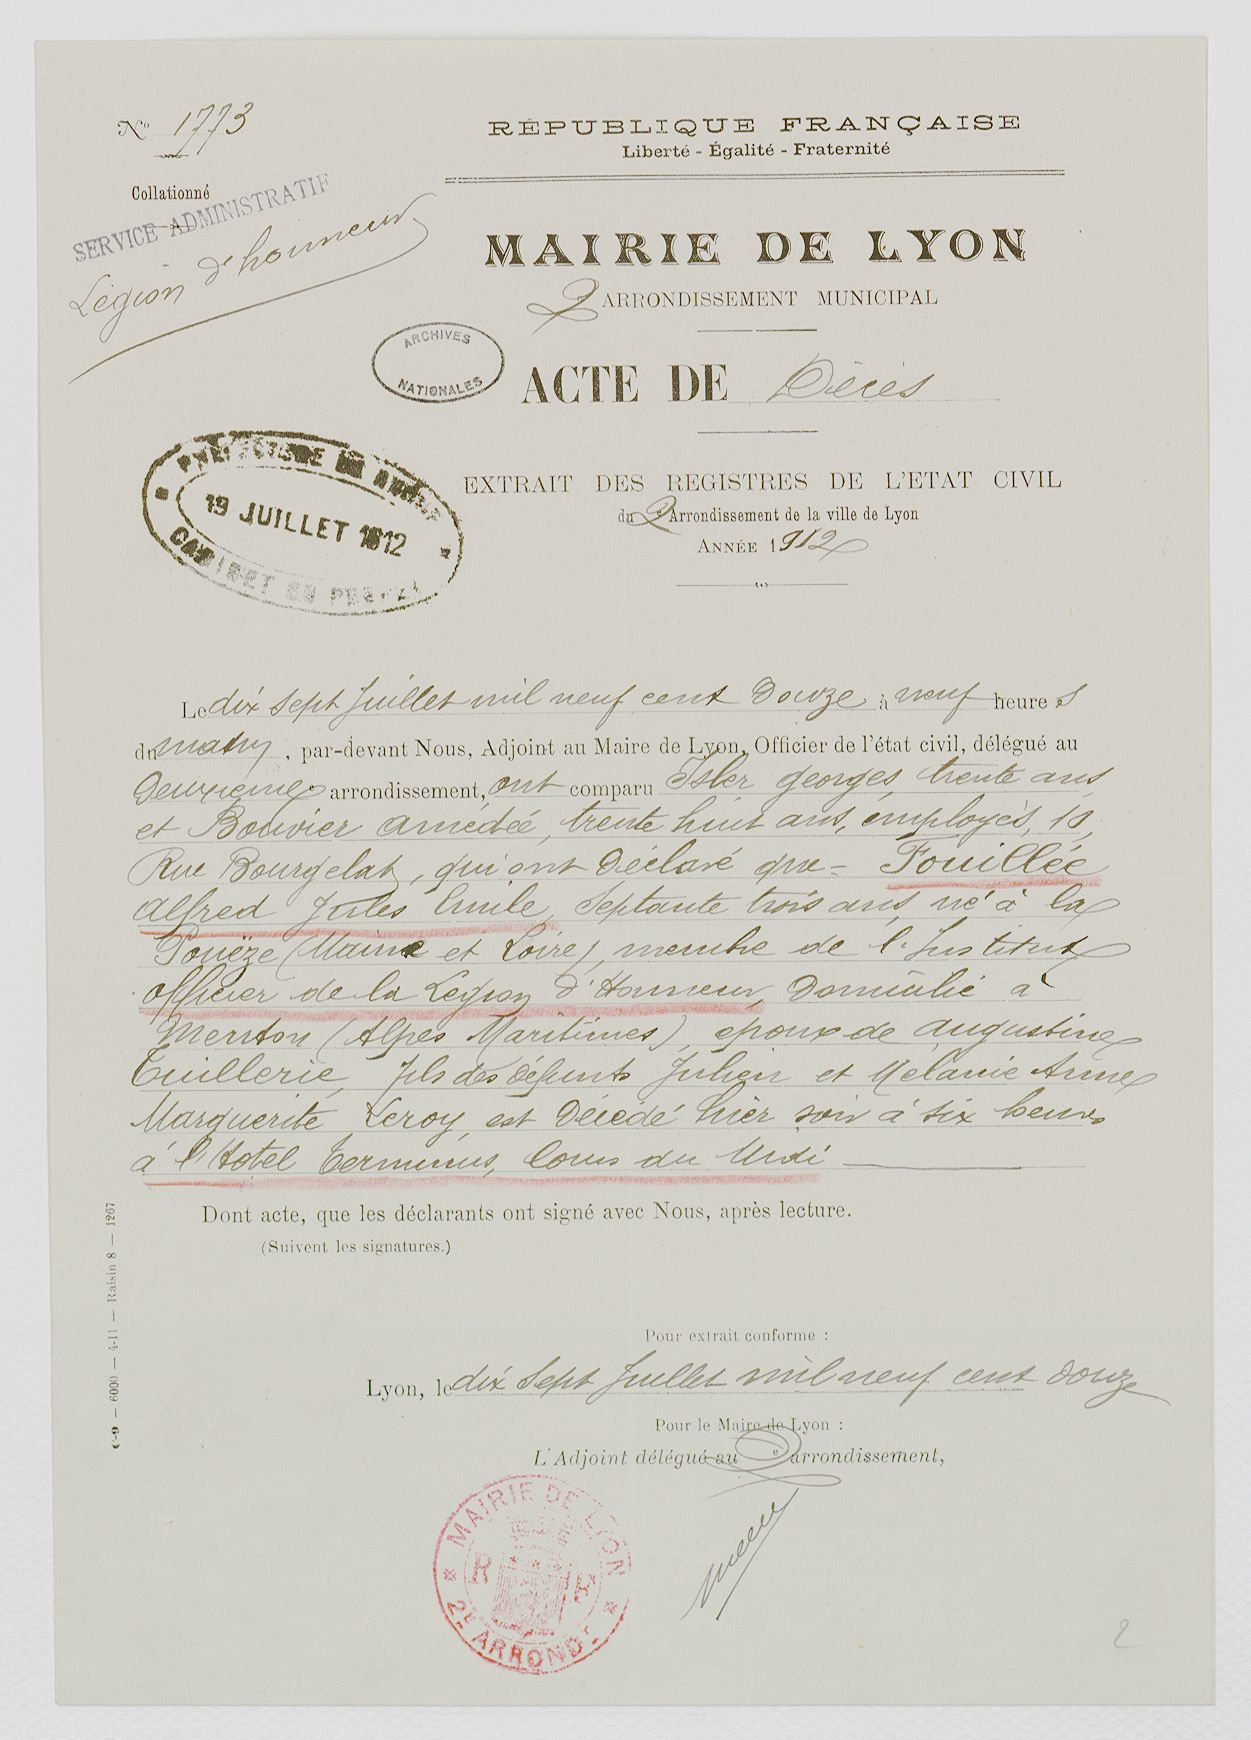 No 1773
RÉPUBLIQUE FRANÇAISE
Liberté - Égalité - Fraternité
Collationné
SERVICE ADMINISTRATIF
Légion d'honneur
MAIRIE DE LYON
2 ARRONDISSEMENT MUNICIPAL
ARCHIVES
NATIONALES
ACTE DE Décès
PRÉFECTURE DU RHÔNE
19 JUILLET 1912
CABINET DU PRÉFET
EXTRAIT DES REGISTRES DE L'ETAT CIVIL
du 2e Arrondissement de la ville de Lyon
ANNÉE 1912
Le dix sept Juillet mil neuf cent Douze à neuf heures
du matin, par-devant Nous, Adjoint au Maire de Lyon, Officier de l'état civil, délégué au
Deuxième arrondissement, ont comparu Isler georges, trente ans
et Bouvier amédée, trente huit ans, employés, 10,
Rue Bourgelat, qui ont Déclaré que = Fouillée
Alfred Jules Emile, Septante trois ans, né à la
Pouëze (Maine et Loire), membre de l'Institut
officier de la Légion d'Honneur, Domicilié à
Menton (Alpes Maritimes), époux de augustine
Tuillerie, fils des défunts Julien et Mélanie Anne
Marguerite Leroy, est Décédé hier soir à six heures
à l'Hotel Terminus, Cours du Midi
Dont acte, que les déclarants ont signé avec Nous, après lecture.
(Suivent les signatures.)
C-9 — 6000 — 4-11 — Raisin 8 — 1267
Pour extrait conforme :
Lyon, le dix Sept Juillet mil neuf cent douze
Pour le Maire de Lyon :
L'Adjoint délégué au 2e arrondissement,
MAIRIE DE LYON
2E ARRONDT
2